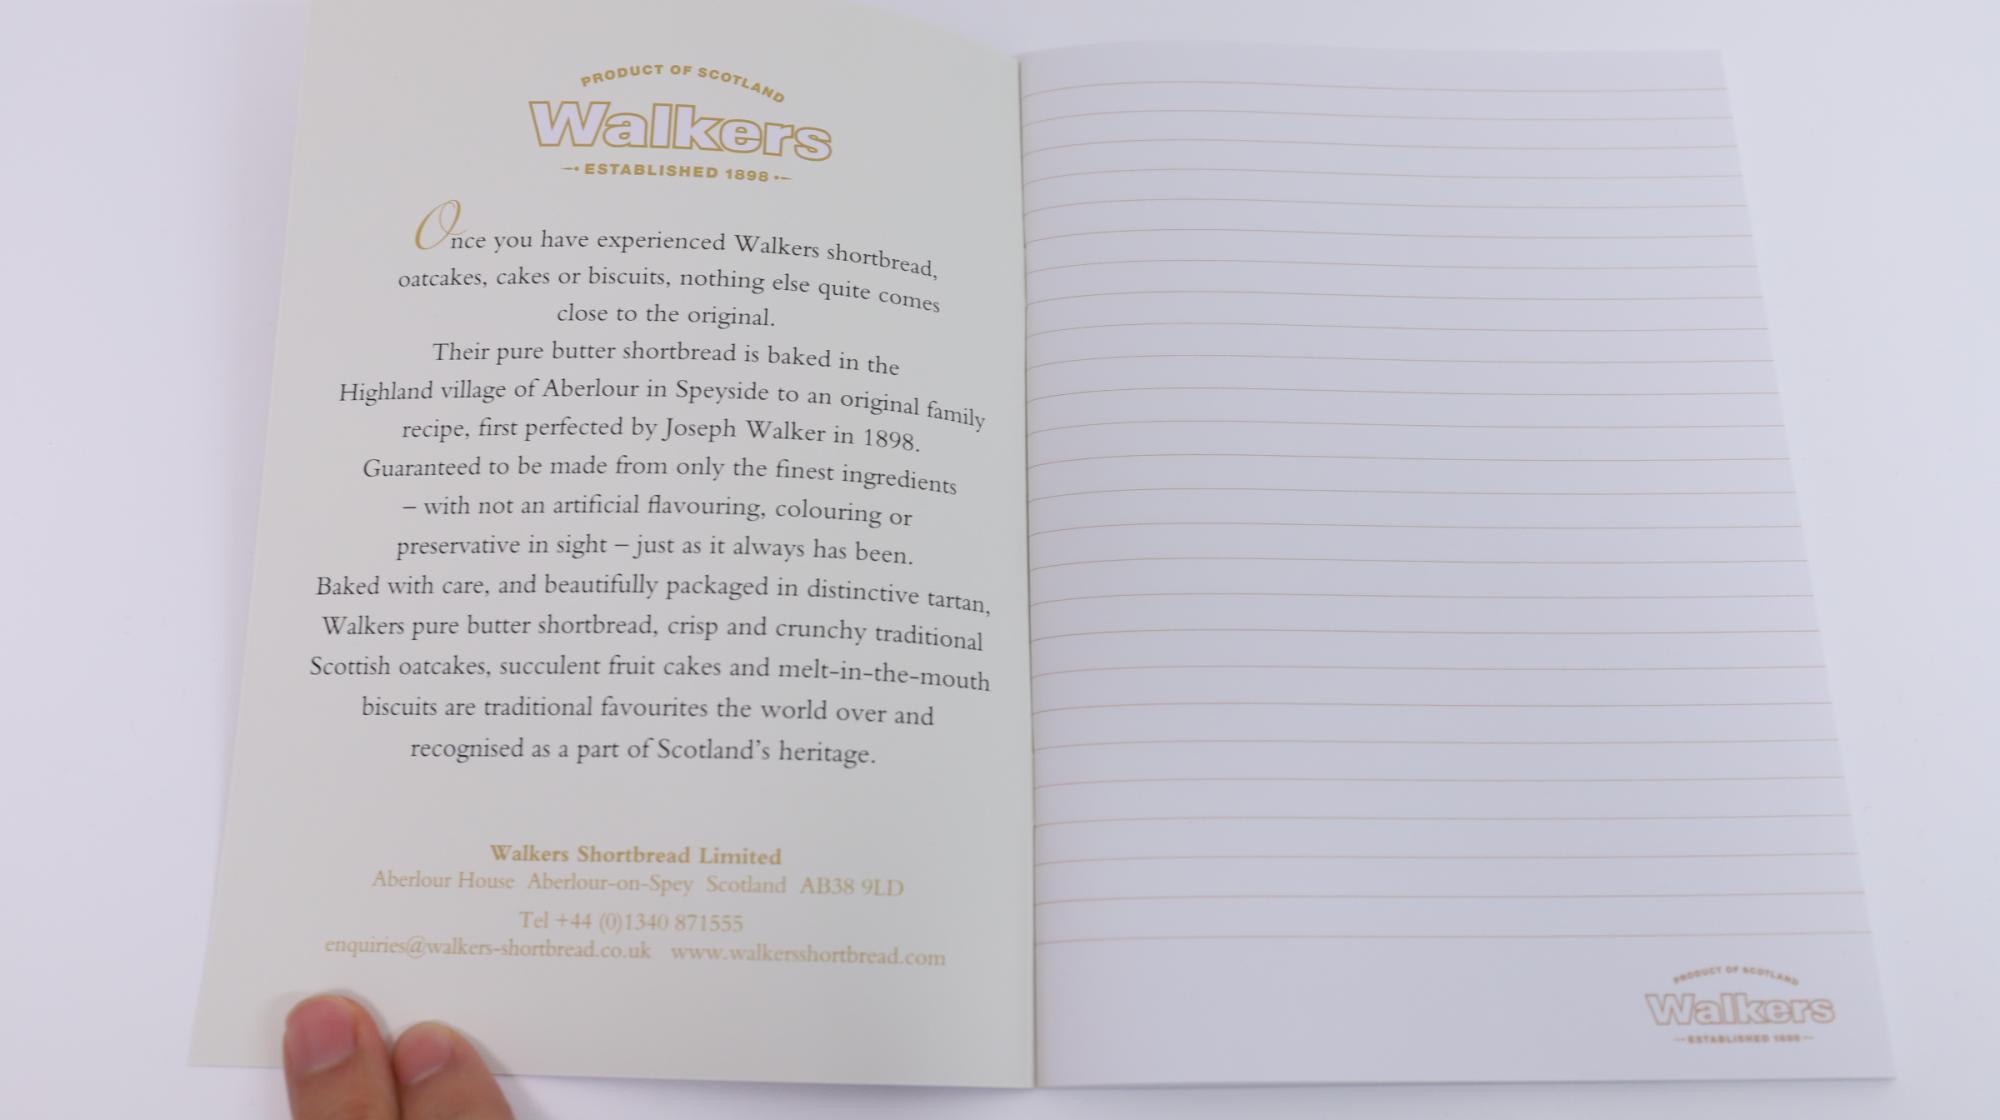 PRODUCT OF SCOTLAND
Walkers
ESTABLISHED 1898
Once you have experienced Walkers shortbread,
oatcakes, cakes or biscuits, nothing else quite comes
close to the original.
Their pure butter shortbread is baked in the
Highland village of Aberlour in Speyside to an original family
recipe, first perfected by Joseph Walker in 1898.
Guaranteed to be made from only the finest ingredients
– with not an artificial flavouring, colouring or
preservative in sight – just as it always has been.
Baked with care, and beautifully packaged in distinctive tartan,
Walkers pure butter shortbread, crisp and crunchy traditional
Scottish oatcakes, succulent fruit cakes and melt-in-the-mouth
biscuits are traditional favourites the world over and
recognised as a part of Scotland's heritage.
Walkers Shortbread Limited
Aberlour House Aberlour-on-Spey Scotland AB38 9LD
Tel +44 (0)1340 871555
enquiries@walkers-shortbread.co.uk www.walkersshortbread.com
PRODUCT OF SCOTLAND
Walkers
ESTABLISHED 1898